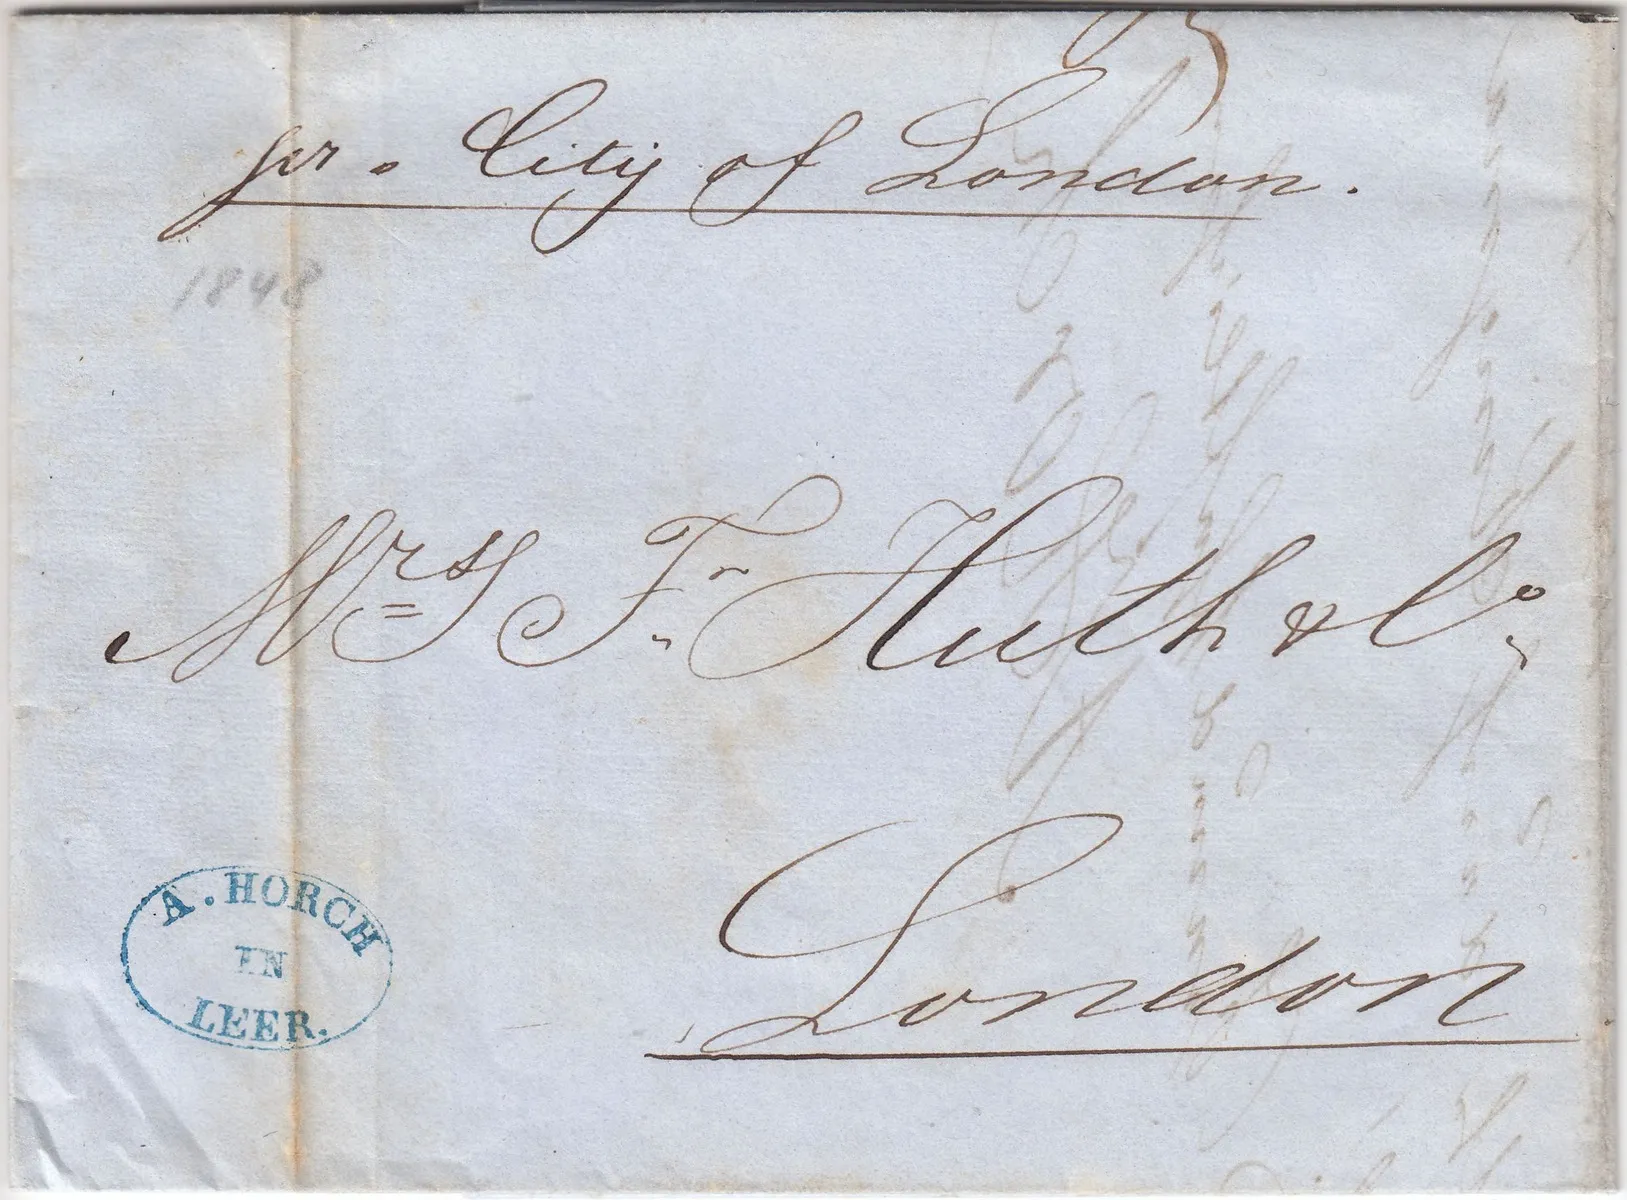 per. City of London.
1848
Mrss Fr. Huth & Co.
London
A. HORCH
IN
LEER.